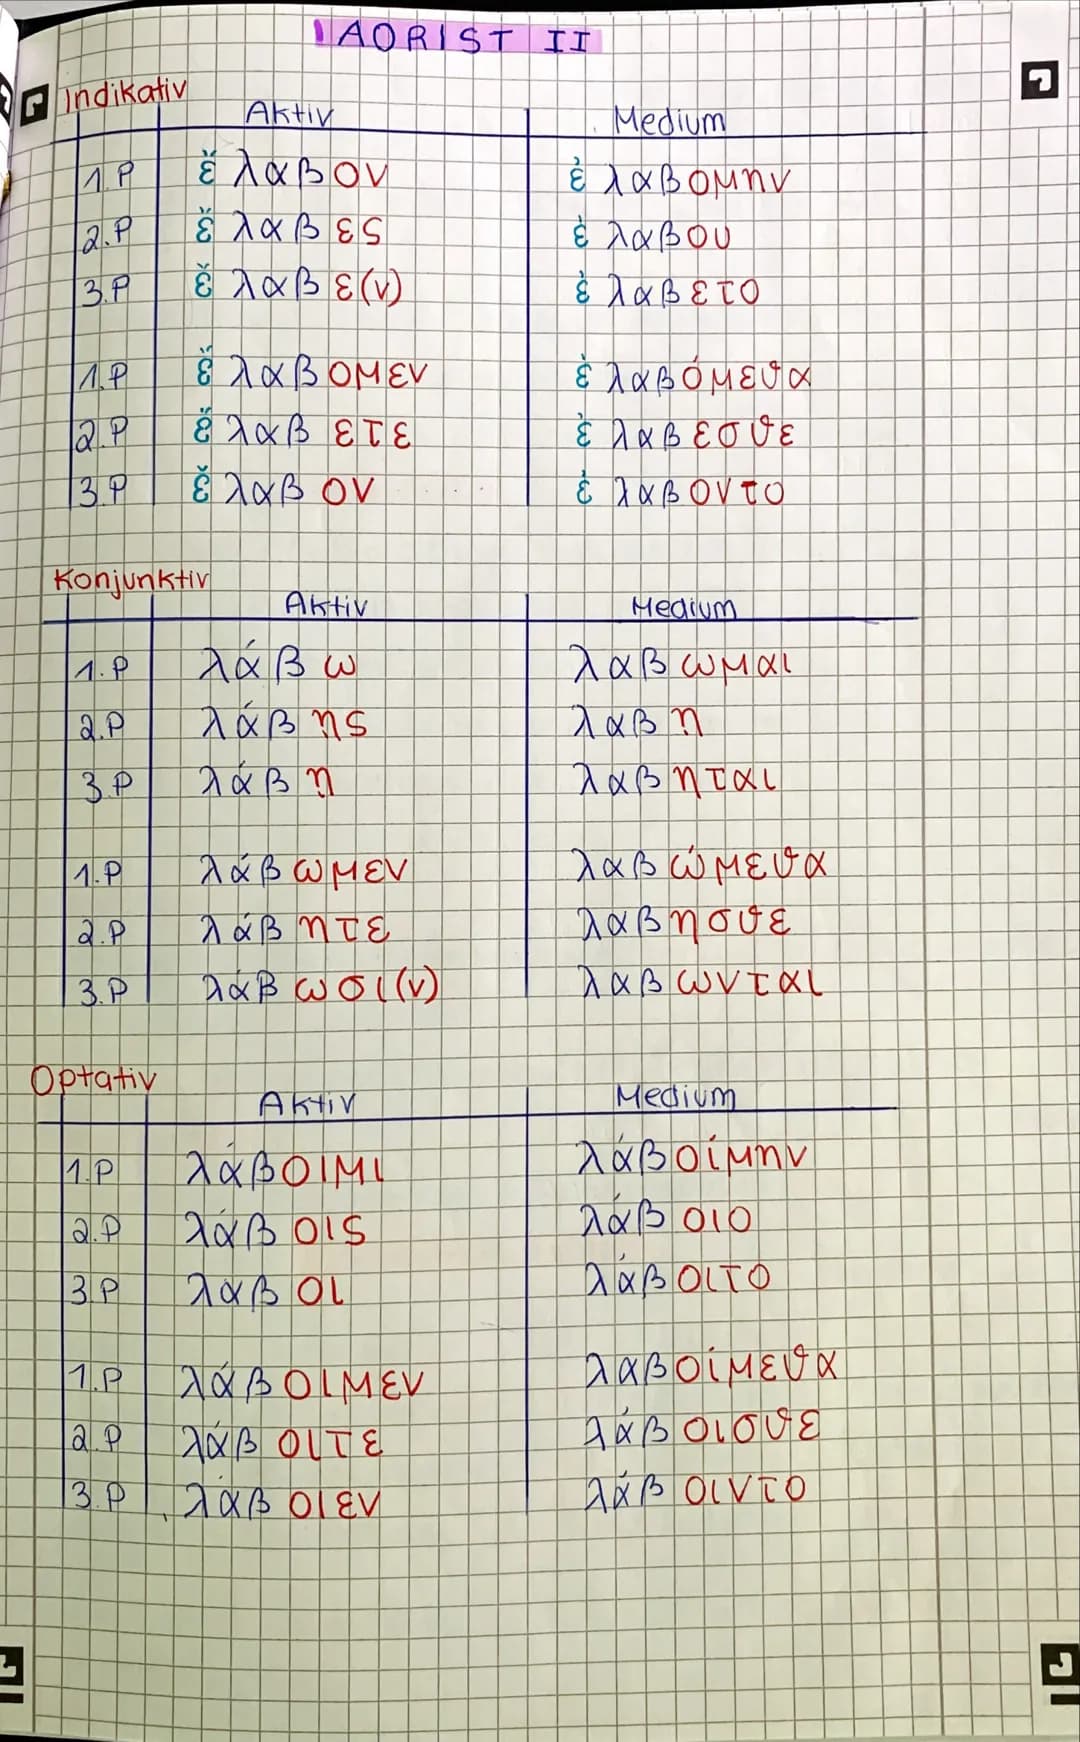 AORIST II
Indikativ
Aktiv Medium
1.P ἔλαβον ἐλαβομην
2.P ἔλαβες ἐλαβου
3.P ἔλαβε(ν) ἐλαβετο
1.P ἔλαβομεν ἐλαβόμεϑα
2.P ἔλαβετε ἐλαβεσϑε
3.P ἔλαβον ἐλαβοντο
Konjunktiv
Aktiv Medium
1.P λάβω λαβωμαι
2.P λάβης λαβη
3.P λάβη λαβηται
1.P λάβωμεν λαβώμεϑα
2.P λάβητε λαβησϑε
3.P λάβωσι(ν) λαβωνται
Optativ
Aktiv Medium
1.P λάβοιμι λάβοίμην
2.P λάβοις λάβοιο
3.P λαβοι λάβοιτο
1.P λάβοιμεν λαβοίμεϑα
2.P λάβοιτε λάβοισϑε
3.P λάβοιεν λάβοιντο